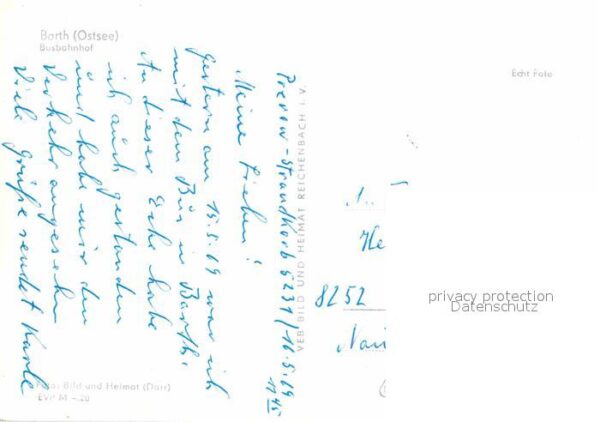 Barth (Ostsee)
Busbahnhof
Prerow - Strandkorb 5231/16.5.69
17.45
Meine Lieben!
gestern am 15.5.69 war ich
mit dem Bus in Barth.
An dieser Ecke habe
ich auch gestanden
und habe mir den
Verkehr angesehn
Viele Grüße sendet
VEB BILD UND HEIMAT REICHENBACH I. V.
Foto: Bild und Heimat (Darr)
Echt Foto
He
8252
privacy protection
Datenschutz